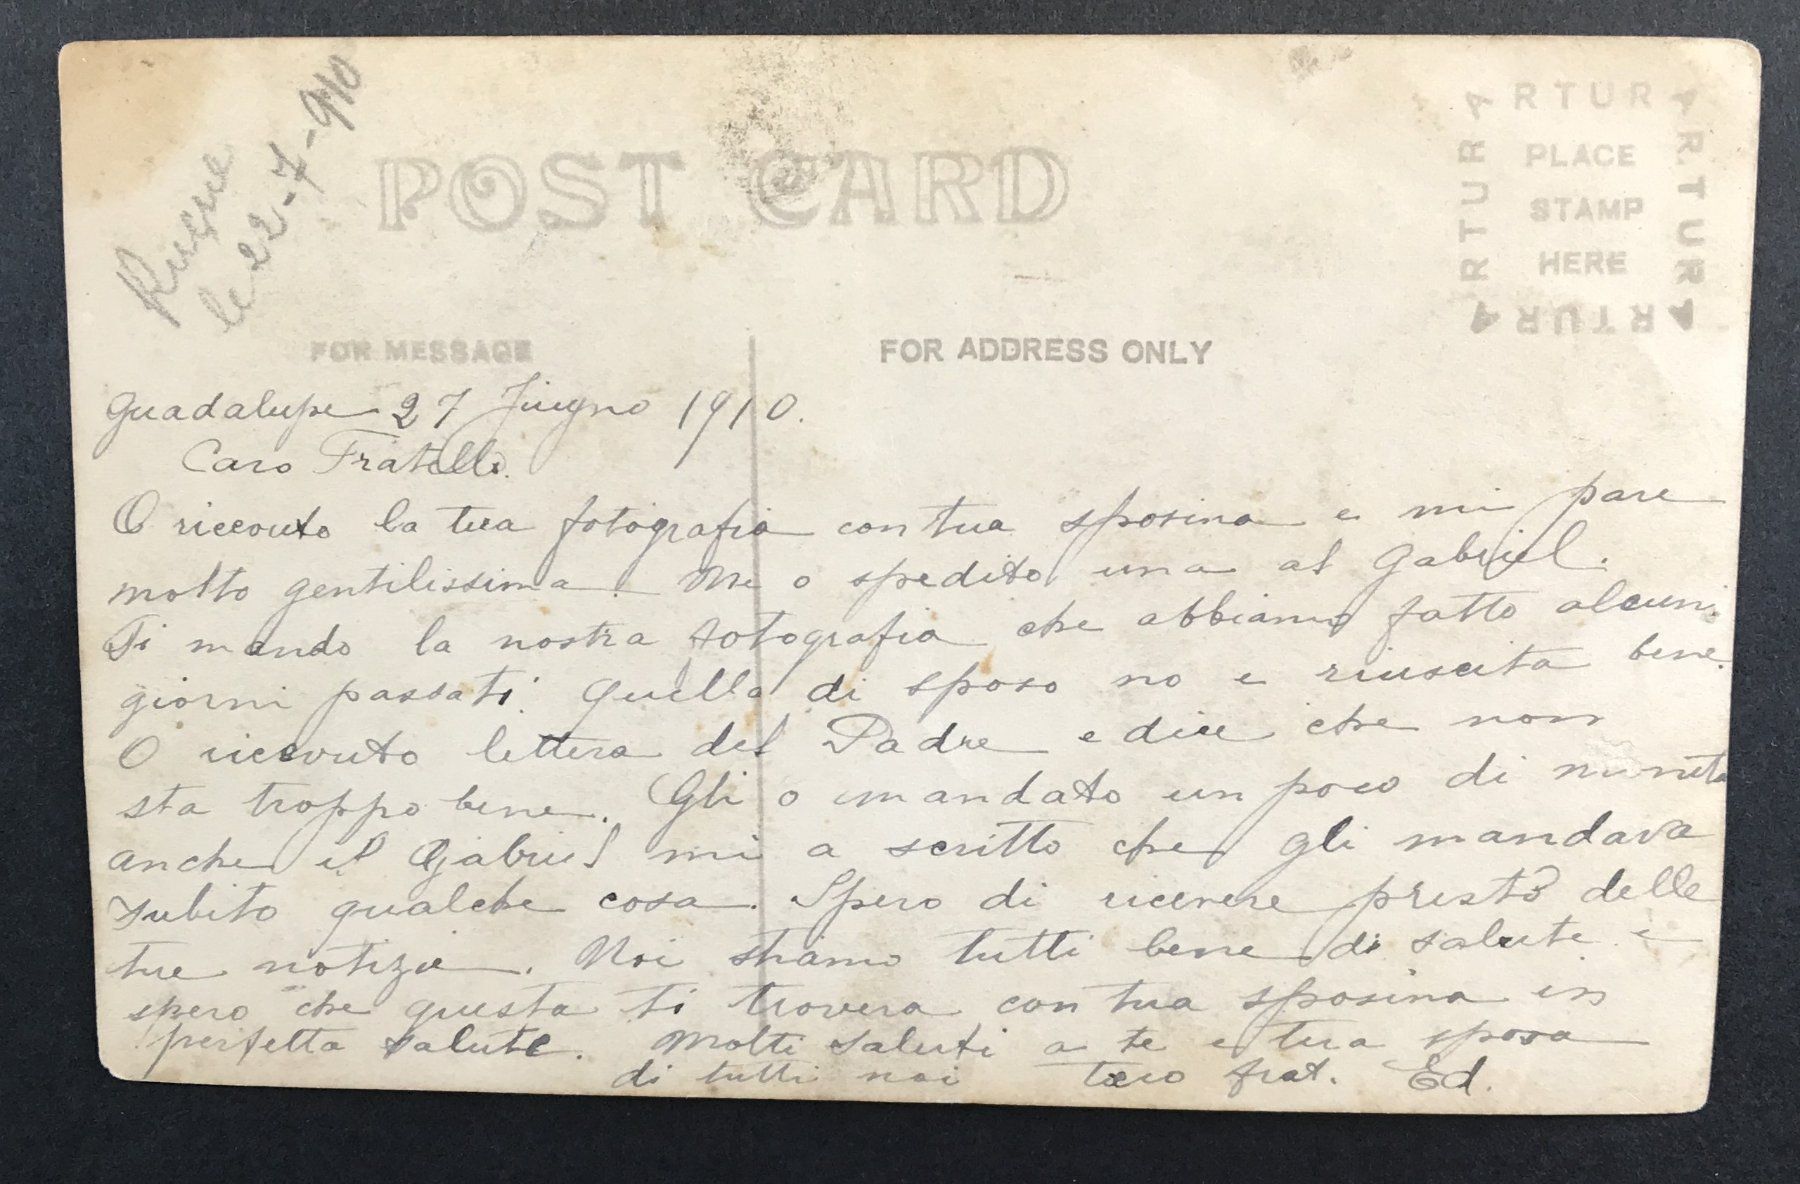 Reçue
le 22-7-910
POST CARD
ARTURA
ARTURA
ARTURA
ARTURA
PLACE
STAMP
HERE
FOR MESSAGE
FOR ADDRESS ONLY
Guadalupe 27 Jiugno 1910.
Caro Fratello.
O riccouto la tua fotografia con tua sposina e mi pare
molto gentilissima. Ne o spedito una al Gabriel.
Ti mando la nostra fotografia che abbiamo fatto alcuni
giorni passati. Quella di sposo no e riuscita bene.
O ricevuto lettera del Padre e dice che non
sta troppo bene. Gli o mandato un poco di
anche il Gabriel mi a scritto che gli mandava
subito qualche cosa. Spero di ricevere presto delle
tue notizie. Noi stiamo tutti bene di salute e
spero che questa ti trovera con tua sposina in
perfetta salute. Molti saluti a te e tua sposa
di tutti noi frat. Ed.